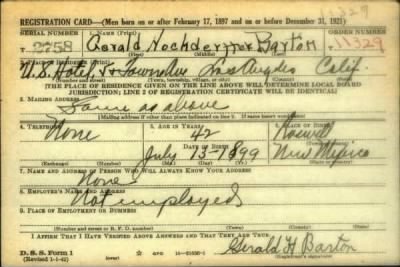 REGISTRATION CARD—(Men born on or after February 17, 1897 and on or before December 31, 1921)
SERIAL NUMBER 1. NAME (Print) ORDER NUMBER
2758 Gerald Barton 11329
(First) (Middle) (Last)
2. PLACE OF RESIDENCE (Print)
U.S. Hotel, Los Angeles Calif.
(Number and street) (Town, township, village, or city) (County) (State)
[THE PLACE OF RESIDENCE GIVEN ON THE LINE ABOVE WILL DETERMINE LOCAL BOARD
JURISDICTION; LINE 2 OF REGISTRATION CERTIFICATE WILL BE IDENTICAL]
3. MAILING ADDRESS
Same as above
[Mailing address if other than place indicated on line 2. If same insert word same]
4. TELEPHONE 5. AGE IN YEARS 6. PLACE OF BIRTH
None 42 Roswell
DATE OF BIRTH (Town or county)
July 13-1899 New Mexico
(Exchange) (Number) (Mo.) (Day) (Yr.) (State or country)
7. NAME AND ADDRESS OF PERSON WHO WILL ALWAYS KNOW YOUR ADDRESS
None
8. EMPLOYER'S NAME AND ADDRESS
Not employed
9. PLACE OF EMPLOYMENT OR BUSINESS
(Number and street or R. F. D. number) (Town) (County) (State)
I AFFIRM THAT I HAVE VERIFIED ABOVE ANSWERS AND THAT THEY ARE TRUE.
Gerald H Barton
D. S. S. Form 1
(Revised 1-1-42) GPO (Registrant's signature)